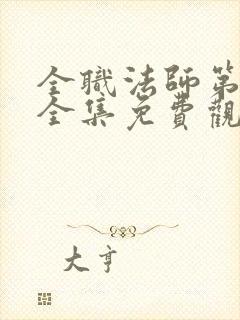 全職法師第
全集免費觀
大亨